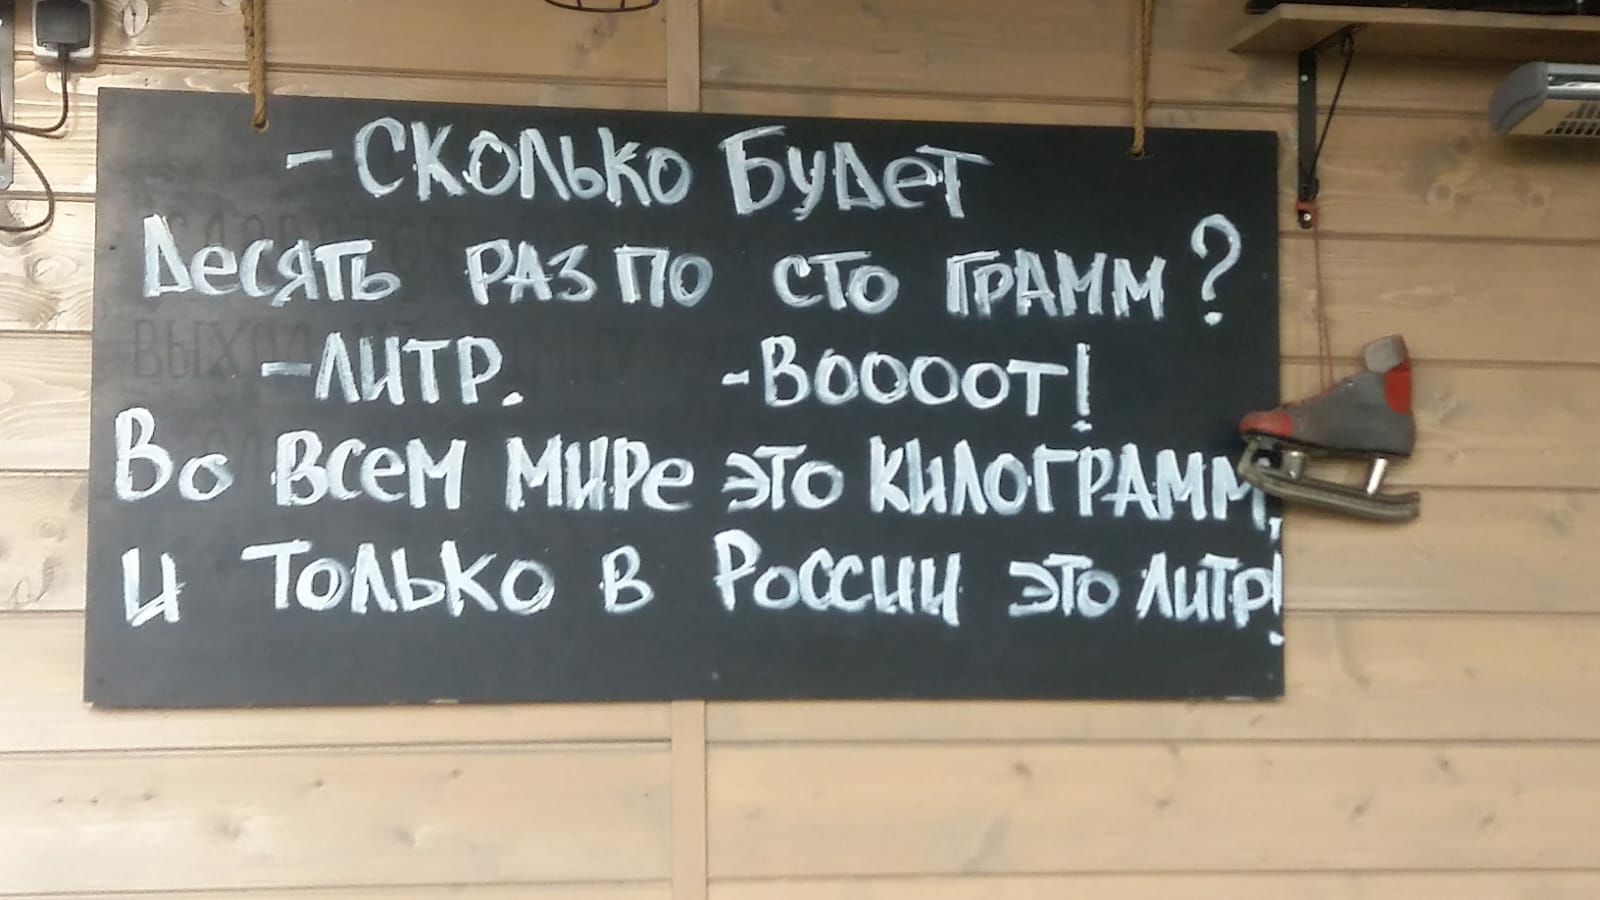 - Сколько будет
десять раз по сто грамм?
- Литр. - Воооот!
Во всем мире это килограмм,
и только в России это литр!